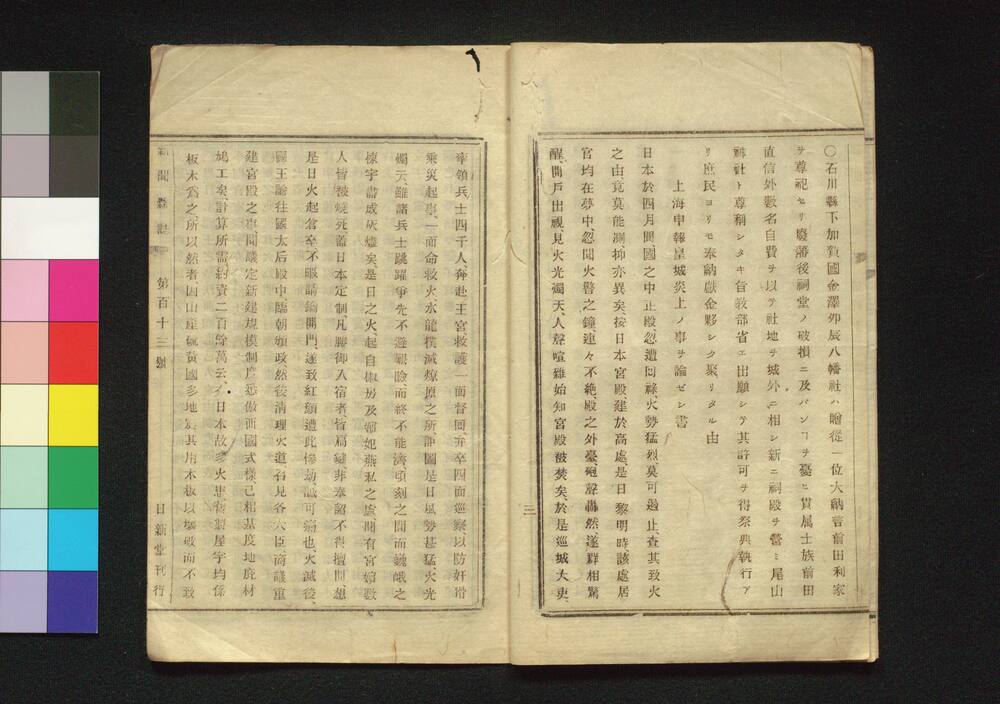 〇石川縣下加賀國金澤卯辰八幡社ハ贈從一位大納言前田利家
ヲ尊祀セリ廢藩後祠堂ノ破損ニ及バンヿヲ憂ヒ貫属士族前田
直信外數名自費ヲ以テ社地ヲ城外ニ相シ新ニ祠殿ヲ營ミ尾山
神社ト尊稱シタキ旨敎部省エ出願シテ其許可ヲ得祭典執行ア
リ庶民ヨリモ奉納獻金夥シク聚リタル由
上海申報皇城炎上ノ事ヲ論ゼシ書
日本於四月間國之中正殿忽遭回祿火勢猛烈莫可遏止査其致火
之由竟莫能測抑亦異矣按日本宮殿建於高處是日黎明時該處居
官均在夢中忽聞火警之鐘連々不絶殿之外臺砲聲轟然遂群相驚
醒開戸出視見火光燭天人聲喧雜始知宮殿被焚矣於是巡城大吏
率領兵士四千人奔赴王宮救護一面督同弁卒四面巡察以防奸宵
乗災起釁一面命救火水龍撲滅燎原之所詎圖是日風勢甚猛火光
燭天雖諸兵士跳躍爭先不避艱險而終不能濟頃刻之間而巍峨之
棟宇盡成灰燼矣是日之火起自椒房及嬪妃燕私之處間有宮嬪數
人皆被燒死蓋日本定制凡勝御入宿者皆扃鍵非奉詔不得擅開想
是日火起倉卒不暇請鑰開門遂致紅顔遭此慘劫誠可痛也火滅後
國王詣往國太后殿中臨朝頒政然後淸理火道召見各大臣商議重
建宮殿之事聞議定新建規模制度悉倣西國式樣已相基度地庀材
鳩工矣計算所需約資二百餘萬云イ日本故多火患緣製屋宇均係
板木爲之所以然者因山産硫黄國多地震其用木板以壞破而不致
新聞雜誌 第百十三號 日新堂刊行
三